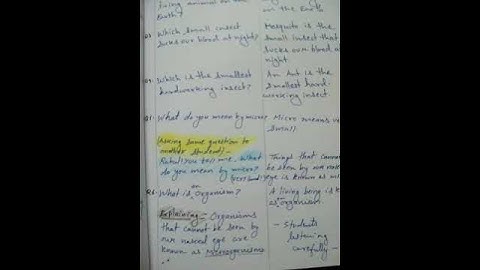 living animal on the
Earth?
on the Earth
Q3. Which small insect
sucks our blood at night?
Mosquito is the
small insect that
sucks our blood at
night
Q4. Which is the smallest
hardworking insect?
An Ant is the
smallest hard-
working insect
Q1. What do you mean by micro?
Micro means
small.
(Asking same question to
another student) -
Rahul! You tell me. What
do you mean by micro?
Things that cannot
be seen by our naked
eye is known as
What is an organism?
A living being is
as organism.
Explaining - Organisms
that cannot be seen by
our naked eye are
known as Microorganisms
- Students
listening
carefully -